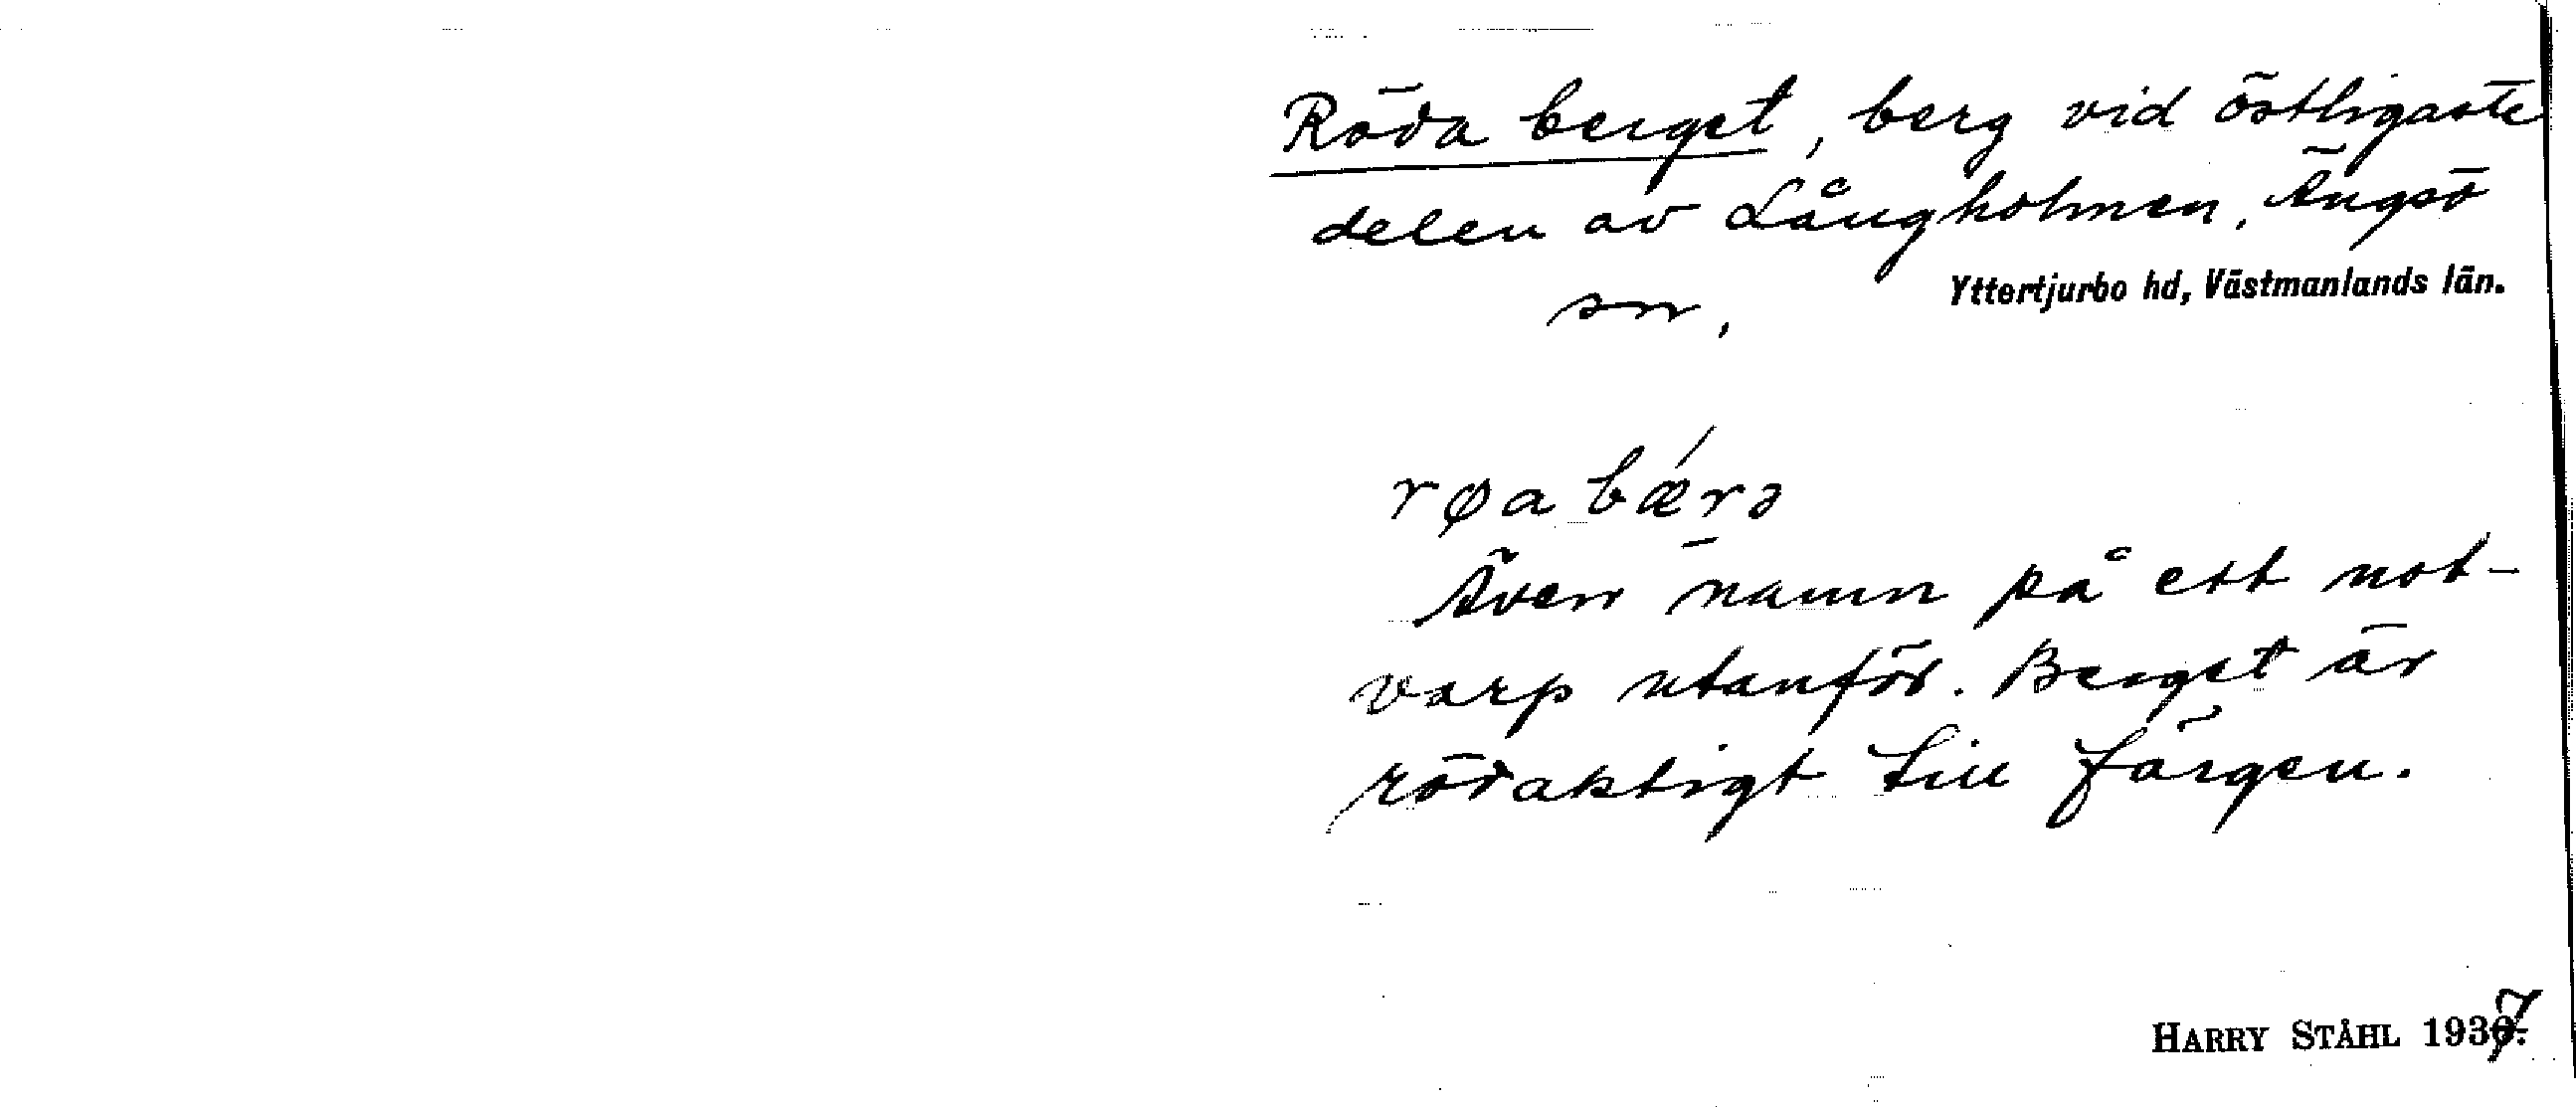 Röda berget, berg vid östligaste
delen av Långholmen, Ängsö
sn,
Yttertjurbo hd, Västmanlands län.
røa bǽrə
Även namn på ett not-
varp utanför. Berget är
rödaktigt till färgen.
HARRY STÅHL 1937.